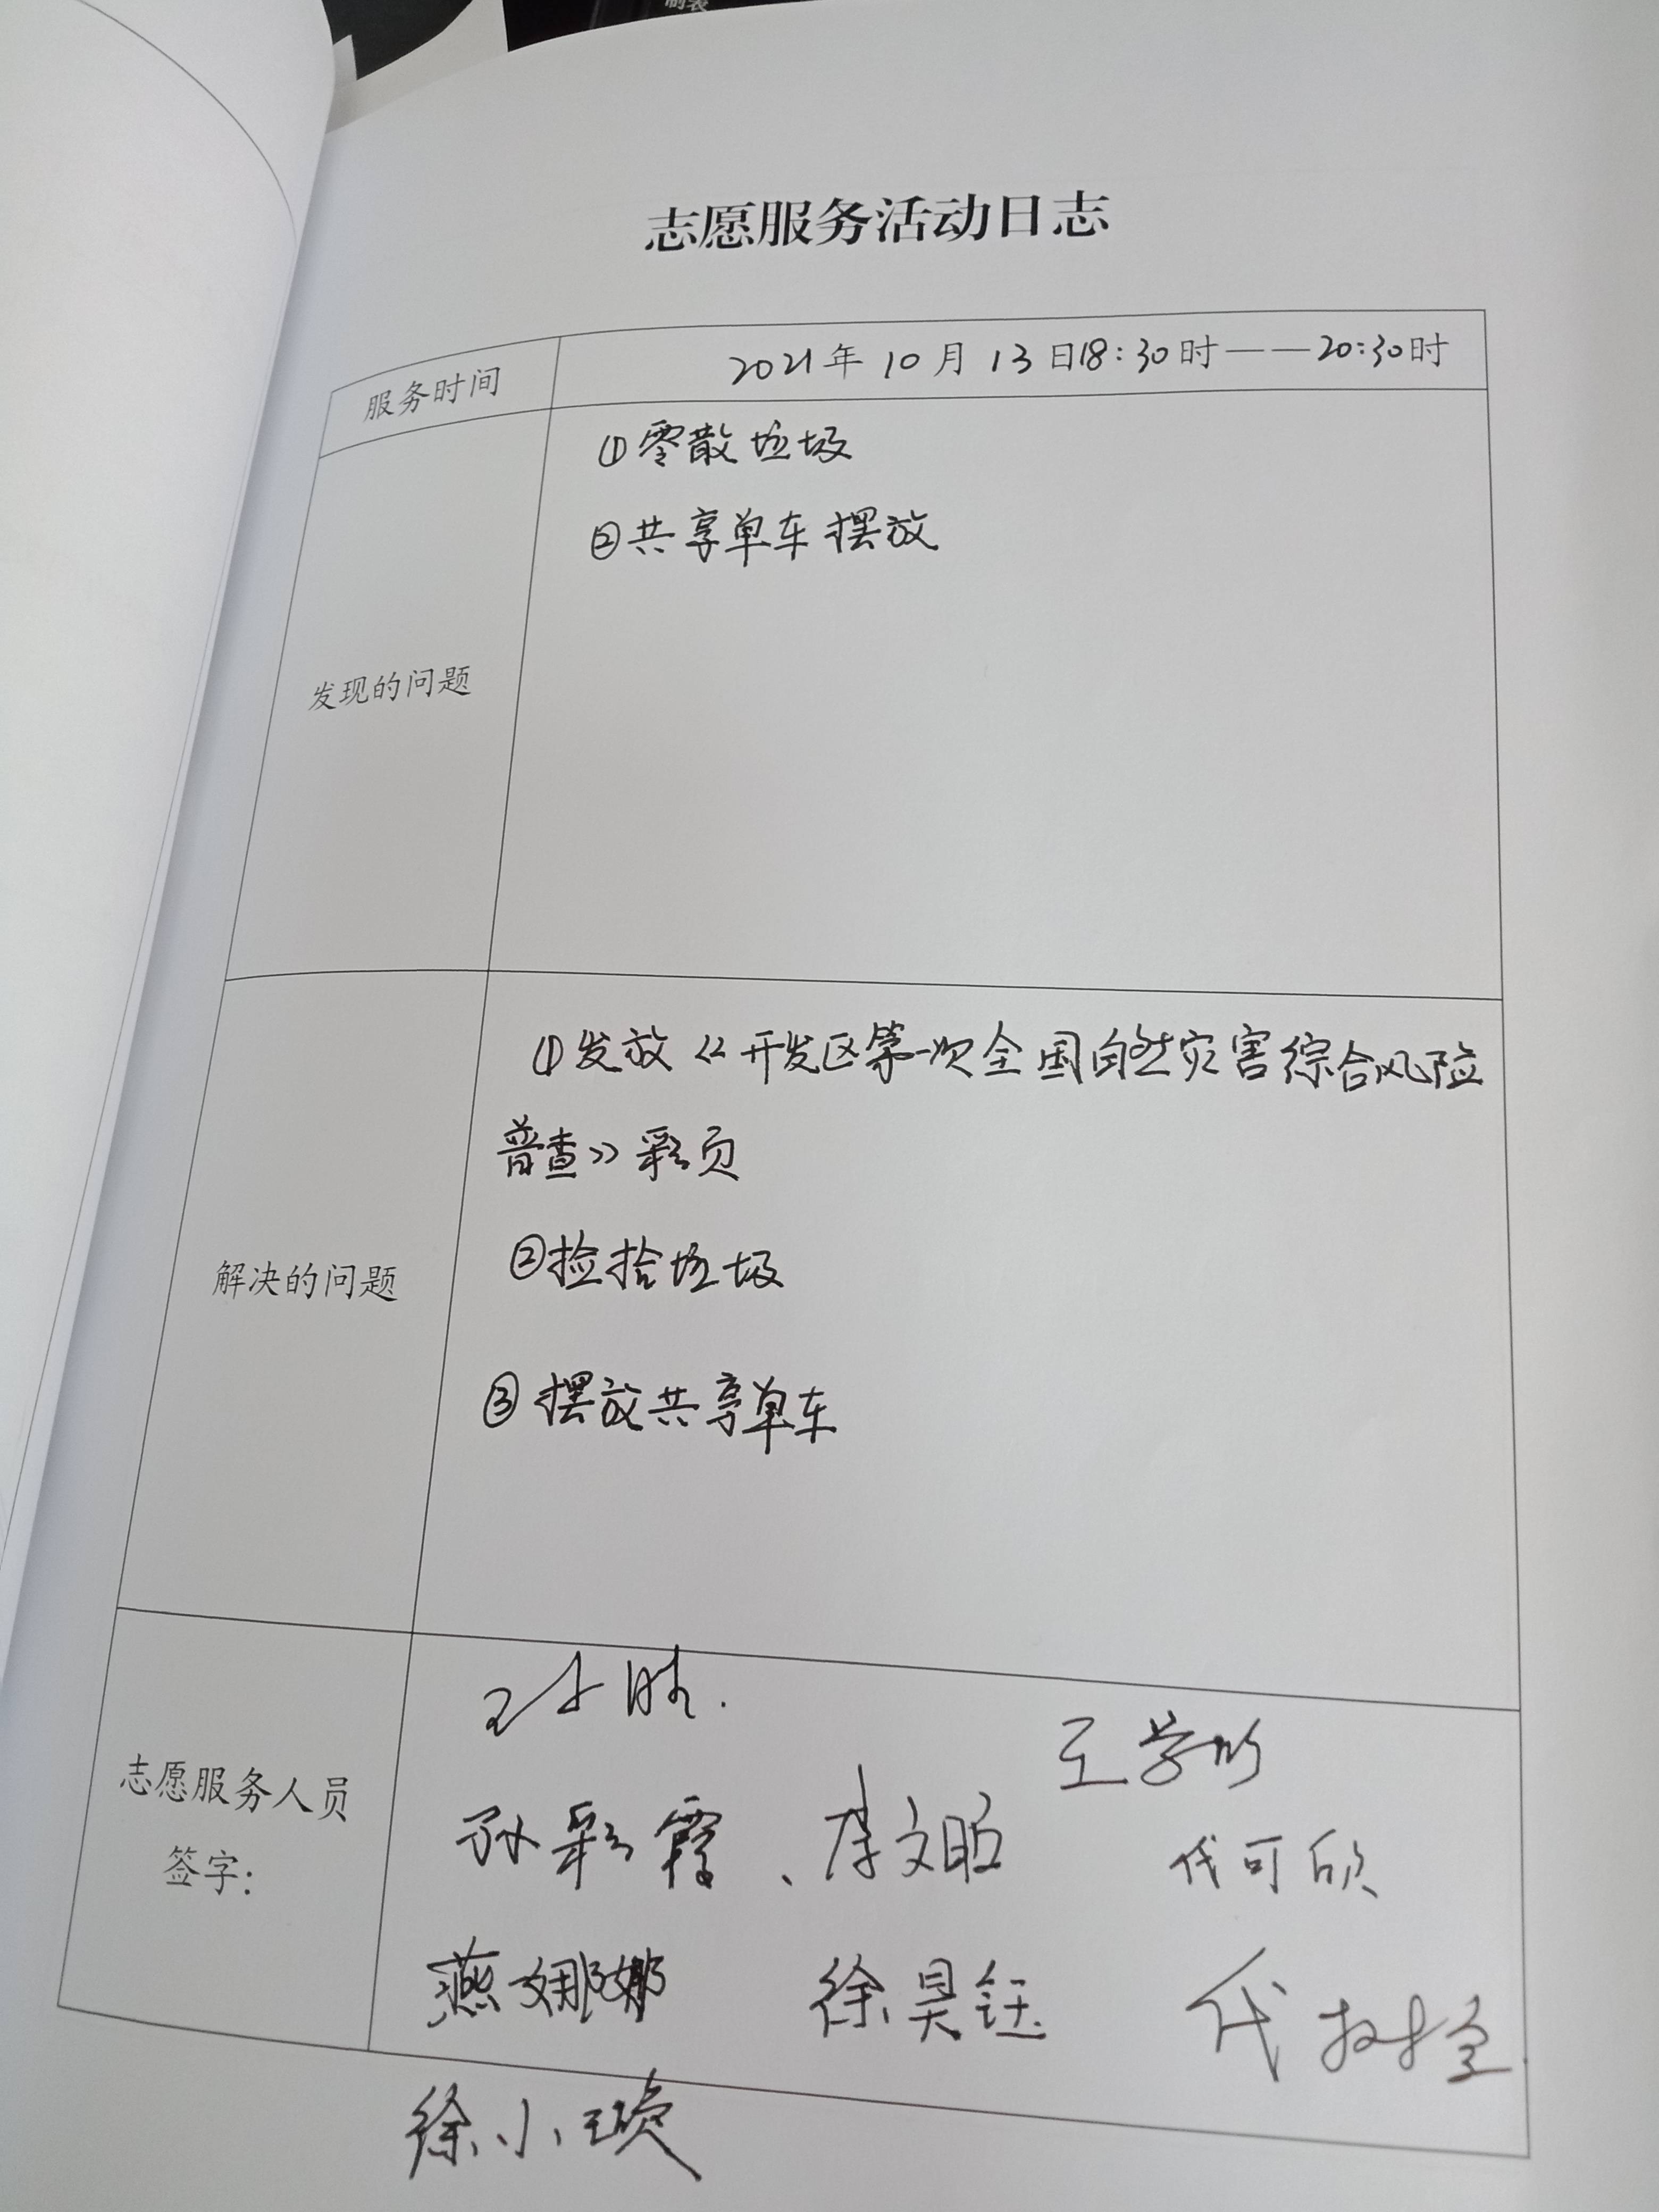 制装
志愿服务活动日志
服务时间
2021年10月13日18:30时——20:30时
发现的问题
①零散垃圾
②共享单车摆放
解决的问题
①发放《开发区第一次全国自然灾害综合风险
普查》彩页
②捡拾垃圾
③摆放共享单车
志愿服务人员
签字:
2小时.
王学
孙彩霞、李文昭
代可欣
燕娜娜 徐昊钰 代树
徐小